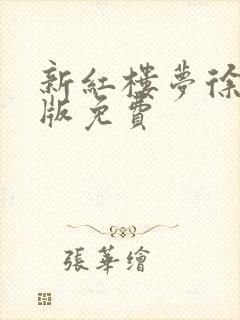 新紅樓夢徐
版免費
張華繪